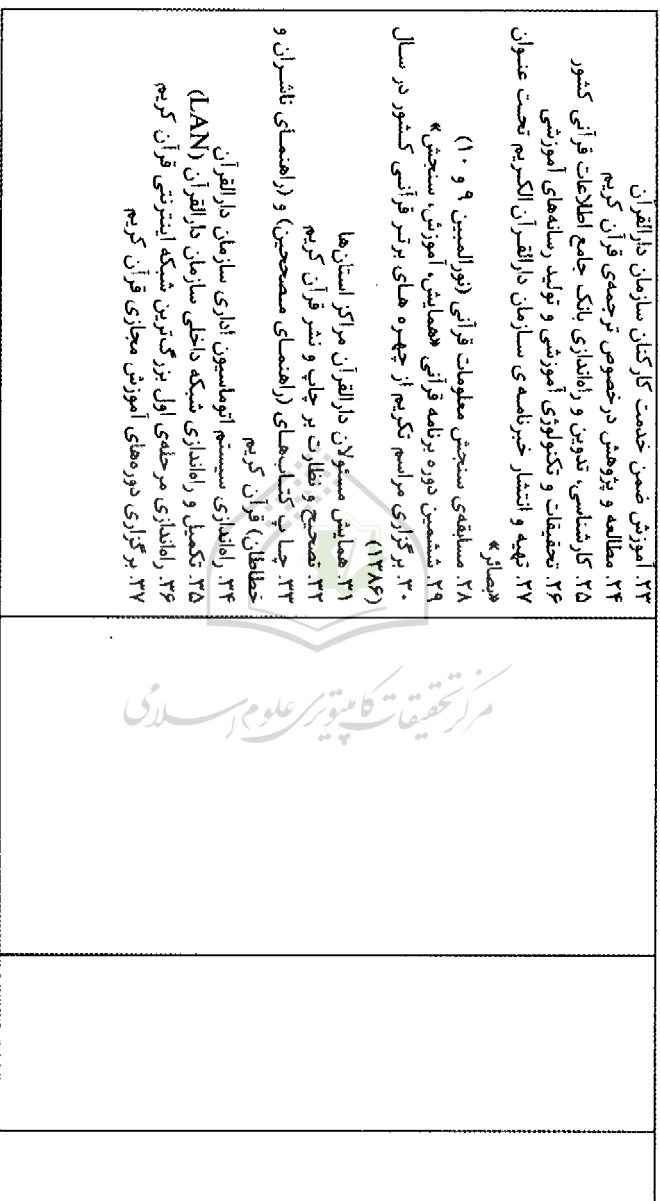 ۲۳. آموزش ضمن خدمت کارکنان سازمان دارالقرآن
۲۴. مطالعه و پژوهش درخصوص ترجمه‌ی قرآن کریم
۲۵. کارشناسی، تدوین و راه‌اندازی بانک جامع اطلاعات قرآنی کشور
۲۶. تحقیقات و تکنولوژی آموزشی و تولید رسانه‌های آموزشی
۲۷. تهیه و انتشار خبرنامه ی سازمان دارالقرآن الکریم تحت عنوان
«بصائر»
۲۸. مسابقه‌ی سنجش معلومات قرآنی (نورالمبین ۹ و ۱۰)
۲۹. ششمین دوره برنامه قرآنی «همایش، آموزش، سنجش»
۳۰. برگزاری مراسم تکریم از چهره های برتر قرآنی کشور در سال
(۱۳۸۶)
۳۱. همایش مسئولان دارالقرآن مراکز استان‌ها
۳۲. تصحیح و نظارت بر چاپ و نشر قرآن کریم
۳۳. چاپ کتاب‌های (راهنمای مصححین) و (راهنمای ناشران و
خطاطان) قرآن کریم
۳۴. راه‌اندازی سیستم اتوماسیون اداری سازمان دارالقرآن
۳۵. تکمیل و راه‌اندازی شبکه داخلی سازمان دارالقرآن (LAN)
۳۶. راه‌اندازی مرحله‌ی اول بزرگ‌ترین شبکه اینترنتی قرآن کریم
۳۷. برگزاری دوره‌های آموزش مجازی قرآن کریم
مرکز تحقیقات کامپیوتری علوم اسلامی